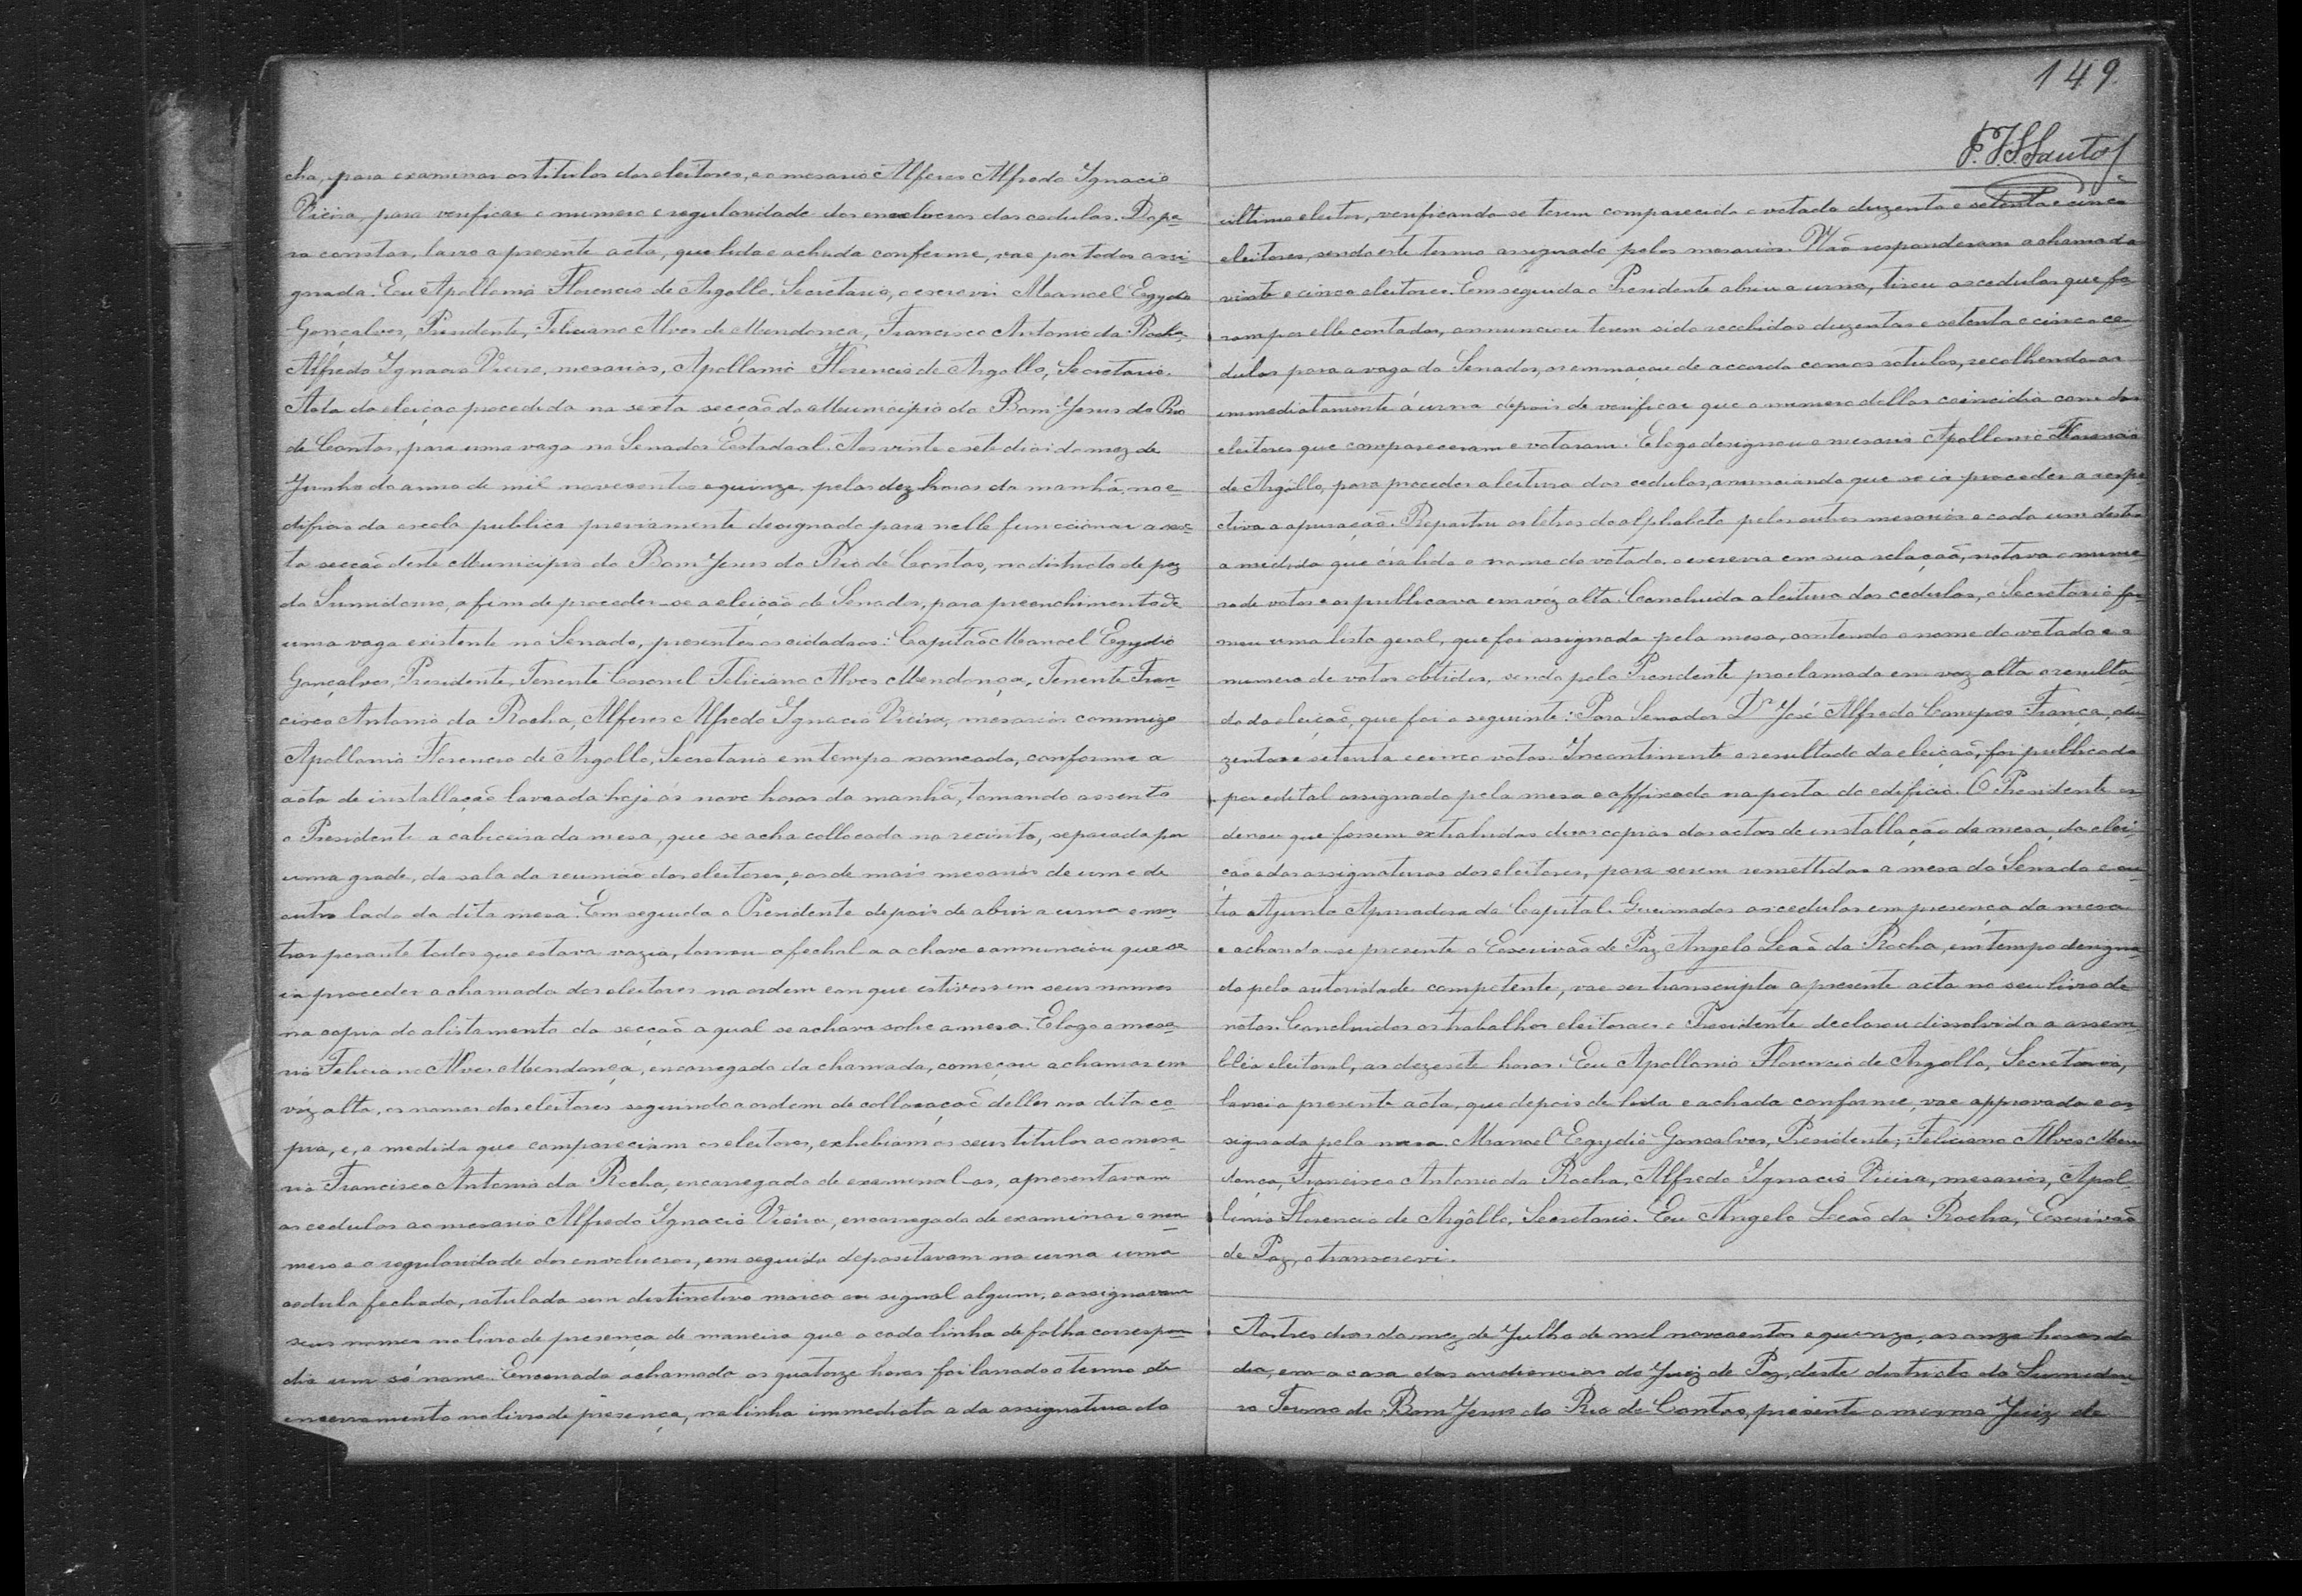 cha, para examinar os titulos dos eleitores, e o mesario Alferes Alfredo Ignacio
Vieira, para verificar o numero e regularidade dos envolucros das cedulas. Do pa-
ra constar, lavro a presente acta, que lida e achada conforme, vae por todos assi-
gnada. Eu Apollonio Florencio de Argollo, Secretario, o escrevi. Manoel Egydio
Gonçalves, Presidente, Feliciano Alves de Mendonça, Francisco Antonio da Rocha,
Alfredo Ignacio Vieira, mesarios, Apollonio Florencio de Argollo, Secretario.
Acta da eleição procedida na sexta secção do Municipio do Bom Jesus do Rio
de Contas, para uma vaga no Senador Estadoal. Aos vinte e sete dias do mez de
Junho do anno de mil novecentos e quinze, pelas dez horas da manhã, no e-
dificio da escola publica previamente designado para nelle funccionar a sex-
ta secção deste Municipio do Bom Jesus do Rio de Contas, no districto de paz
do Sumidouro, afim de proceder-se a eleição de Senador, para preenchimento de
uma vaga existente no Senado, presentes os cidadãos: Capitão Manoel Egydio
Gonçalves, Presidente, Tenente Coronel Feliciano Alves Mendonça, Tenente Fran-
cisco Antonio da Rocha, Alferes Alfredo Ignacio Vieira, mesarios commigo
Apollonio Florencio de Argollo, Secretario em tempo nomeado, conforme a
acta de installação lavrada hoje ás nove horas da manhã, tomando assento
o Presidente a cabeceira da mesa, que se acha collocada no recinto, separada por
uma grade, da sala da reunião dos eleitores, e os de mais mesarios de um e de
outro lado da dita mesa. Em seguida o Presidente depois de abrir a urna e mos-
trar perante todos que estava vazia, tornou a fechal-a a chave e annunciou que se
ia proceder a chamada dos eleitores na ordem em que estivessem seus nomes
na copia do alistamento da secção a qual se achava sobre a mesa. E logo o mesa-
rio Feliciano Alves Mendonça, encarregado da chamada, começou a chamar em
vóz alta, os nomes dos eleitores seguindo a ordem de collocação delles na dita co-
pia, e, a medida que compareciam os eleitores, exhebiam os seus titulos ao mesa-
rio Francisco Antonio da Rocha, encarregado de examinal-os, apresentavam
as cedulas ao mesario Alfredo Ignacio Vieira, encarregado de examinar o nu-
mero e a regularidade dos envolucros, em seguida depositavam na urna uma
cedula fechada, rotulada sem distinctivo marca ou signal algum, e assignavam
seus nomes no livro de presença de maneira que a cada linha de folha correspon-
dia um só nome. Encerrada a chamada as quatorze horas foi lavrado o termo de
encerramento no livro de presença, na linha immediata a da assignatura do
149
F. J. S. Santos
ultimo eleitor, verificando-se terem comparecido e votado duzentos e setenta e cinco
eleitores, sendo este termo assignado pelos mesarios. Não responderam a chamada
vinte e cinco eleitores. Em seguida o Presidente abriu a urna, tirou as cedulas que fo-
ram por elle contadas, annunciou terem sido recebidas duzentas e setenta e cinco ce-
dulas para a vaga do Senador, os emmaçou de accordo com os rotulos, recolhendo-as
immediatamente á urna depois de verificar que o numero dellas coincidia com dos
eleitores que compareceram e votaram. E logo designou o mesario Apollonio Florencio
de Argôllo, para proceder a leitura das cedulas, annunciando que se ia proceder a respe-
ctiva a apuração. Repartiu as letras do alphabeto pelos outros mesarios e cada um destes
a medida que éra lido o nome do votado, o escrevia em sua relação, notava o nume-
ro de votos e os publicava em vóz alta. Concluida a leitura das cedulas, o Secretario for-
mou uma lista geral, que foi assignada pela mesa, contendo o nome do votado e o
numero de votos obtidos, sendo pelo Presidente proclamado em voz alta o resulta-
do da eleição, que foi o seguinte: Para Senador Dr José Alfredo Campos França, du-
zentos e setenta e cinco votos. Incontinente o resultado da eleição, foi publicado
por edital assignado pela mesa e affixado na porta do edificio. O Presidente or-
denou que fossem extrahidas duas copias das actas de installação da mesa, da elei-
ção e das assignaturas dos eleitores, para serem remettidas a mesa do Senado e ou-
tra a Junta Apuradora da Capital. Queimadas as cedulas em presença da mesa
e achando-se presente o Escrivão de Paz Angelo Leão da Rocha, em tempo designa-
do pela autoridade competente, vae ser transcripta a presente acta no seu livro de
notas. Concluidos os trabalhos eleitoraes o Presidente declarou dissolvida a assem-
bléa eleitoral, as dezesete horas. Eu Apollonio Florencio de Argollo, Secretario,
lavrei a presente acta, que depois de lida e achada conforme, vae approvada e as-
signada pela mesa. Manoel Egydio Goncalves, Presidente; Feliciano Alves Men-
donça, Francisco Antonio da Rocha, Alfredo Ignacio Vieira, mesarios, Apol-
lonio Florencio de Argôllo, Secretario. Eu Angelo Leão da Rocha, Escrivão
de Paz, o transcrevi.
Aos tres dias do mez de Julho de mil novecentos e quinze, as onze horas do
dia, em a casa das audiencias do Juiz de Paz, deste districto do Sumidou-
ro Termo do Bom Jesus do Rio de Contas, presente o mesmo Juiz de